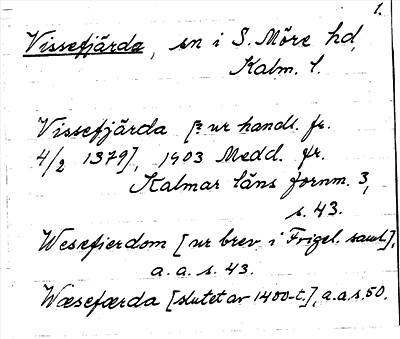 1.
Vissefjärda, sn i S. Möre hd,
Kalm. l.
Vissefjärda [= ur handl. fr.
4/2 1379], 1903 Medd. fr.
Kalmar läns fornm. 3,
s. 43.
Wesefierdom [ur brev i Frigel. saml.],
a. a. s. 43.
Wæsefærda [slutet av 1400-t.], a.a.s.50.